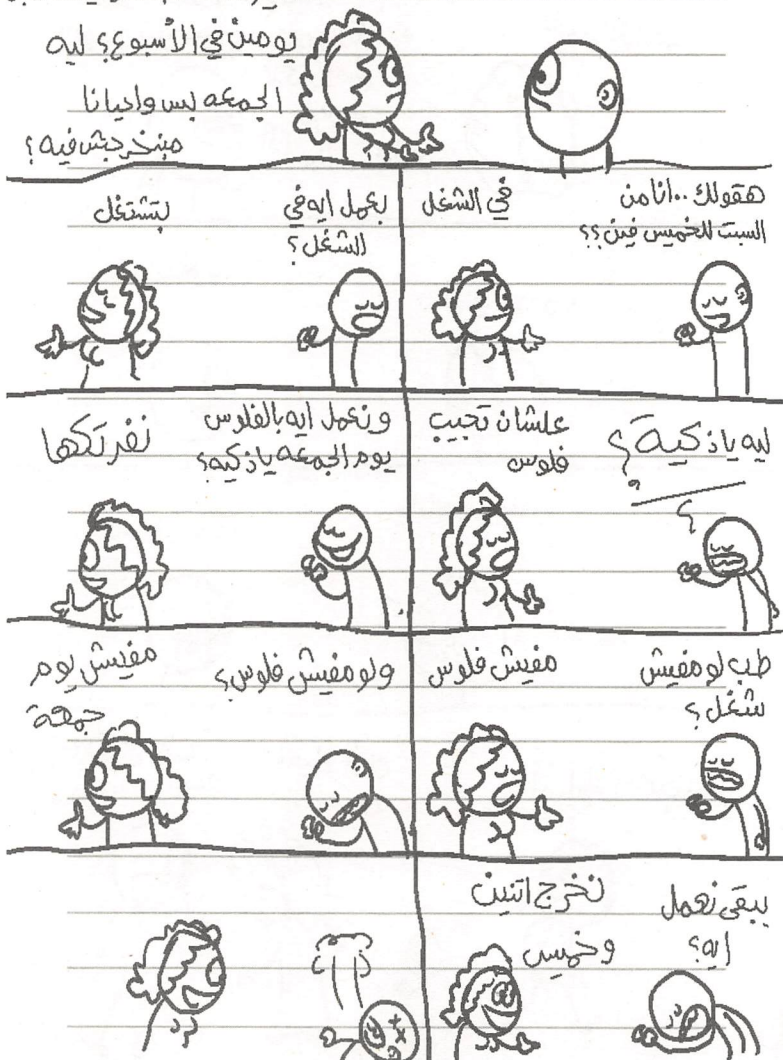 يومين في الأسبوع؟ ليه
الجمعه بس واحيانا
مبنخرجش فيه؟
هقولك.. انا من
السبت للخميس فين؟؟
في الشغل
بعمل ايه في
الشغل؟
بتشتغل
ليه ياذكية؟
علشان تجيب
فلوس
ونعمل ايه بالفلوس
يوم الجمعه ياذكيه؟
نفرتكها
طب لو مفيش
شغل؟
مفيش فلوس
ولو مفيش فلوس؟
مفيش يوم
جمعة
يبقى نعمل
ايه؟
نخرج اتنين
وخميس